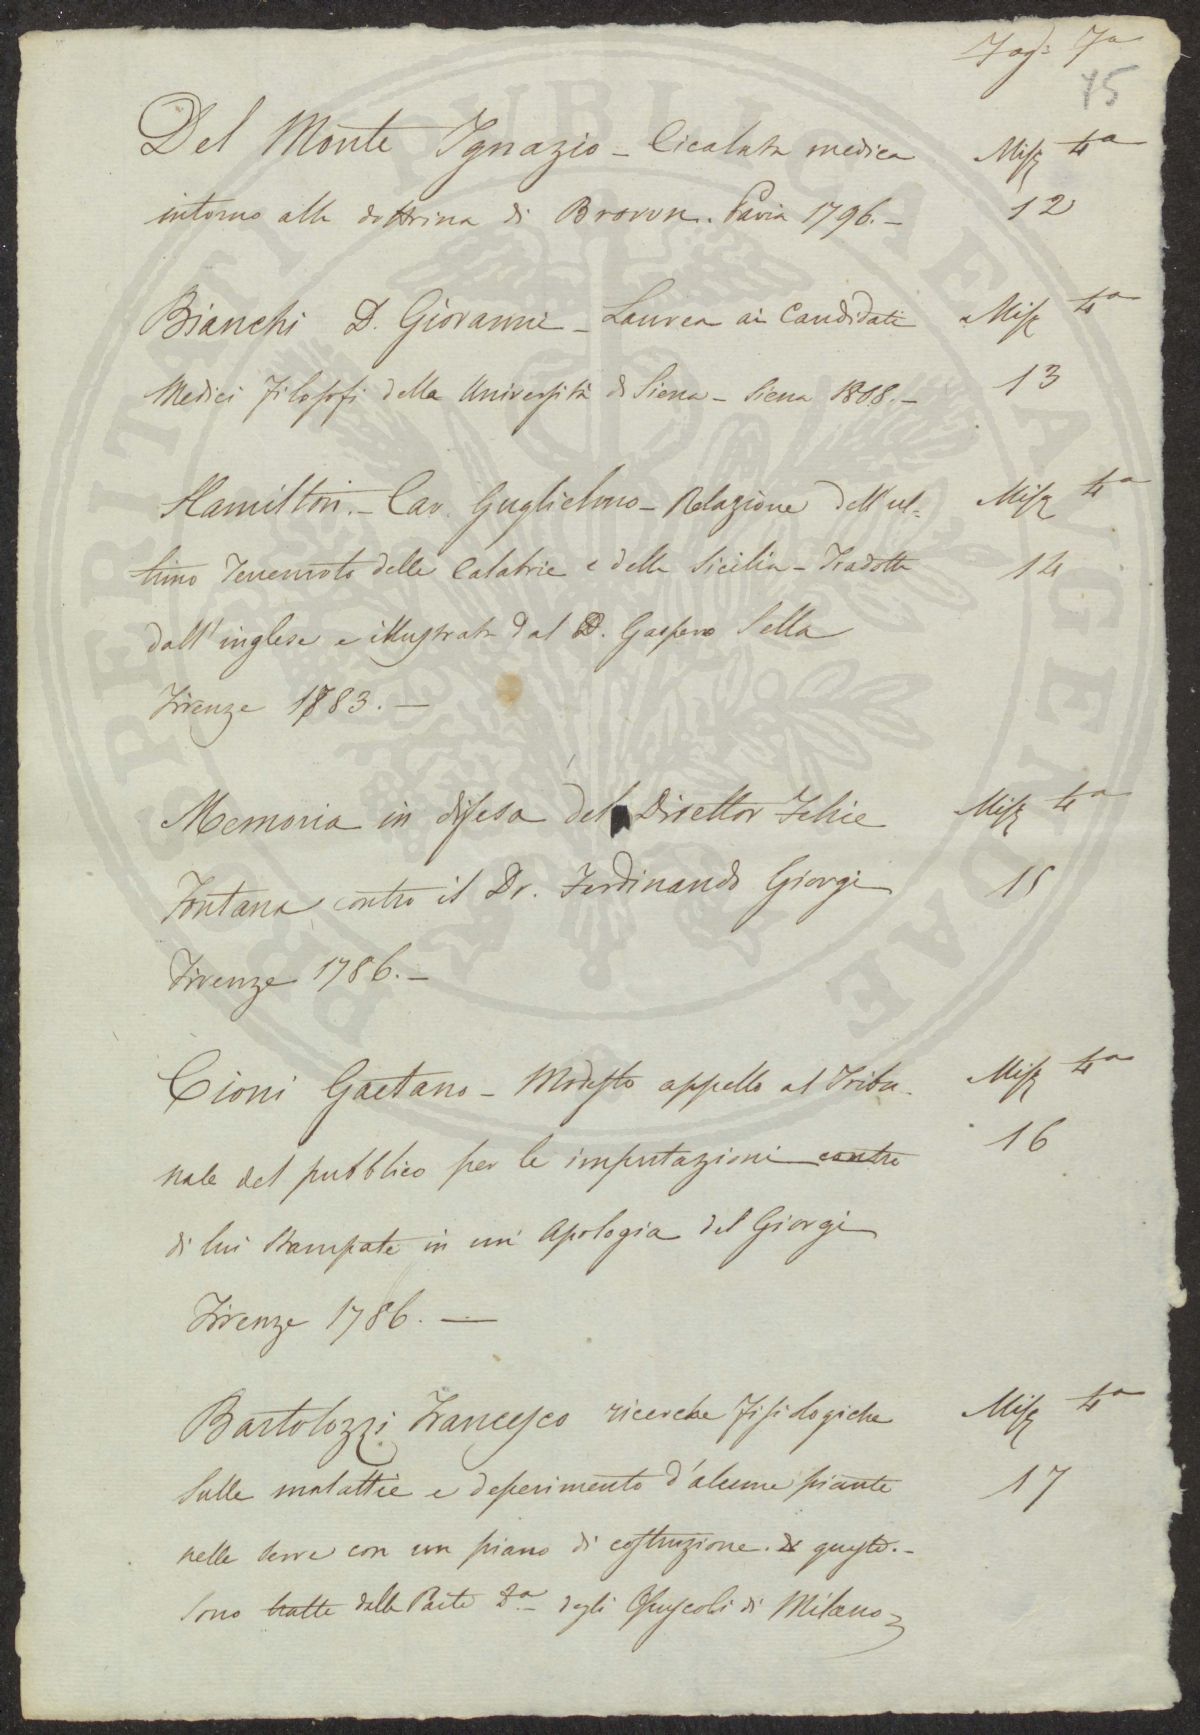 Fag: 7a
45
Del Monte Ignazio - Cicalata medica Misc 4a
intorno alla dottrina di Brovvn. Pavia 1796.- 12
Bianchi D. Giovanni - Laurea ai Candidati Misc 4a
Medici Filosofi della Università di Siena - Siena 1808.- 13
Hamilton.- Cav. Guglielmo - Relazione dell'ul= Misc 4a
timo Terremoto delle Calabrie e della Sicilia - Tradotta 14
dall'inglese e illustrata dal D. Gaspero Sella
Firenze 1783. -
Memoria in difesa del Direttor Felice Misc 4a
Fontana contro il Dr. Ferdinando Giorgi 15
Firenze 1786.-
Cioni Gaetano - Modesto appello al Tribu- Misc 4a
nale del pubblico per le imputazioni contro 16
di lui stampate in un' Apologia del Giorgi
Firenze 1786. -
Bartolozzi Francesco ricerche Fisiologiche Misc 4a
Sulle malattie e deperimento d'alcune piante 17
nelle serre con un piano di costruzione di queste.-
Sono tratte dalla Parte 2.a degli Opuscoli di Milano
PROSPERITATI PUBLICAE AUGENDAE